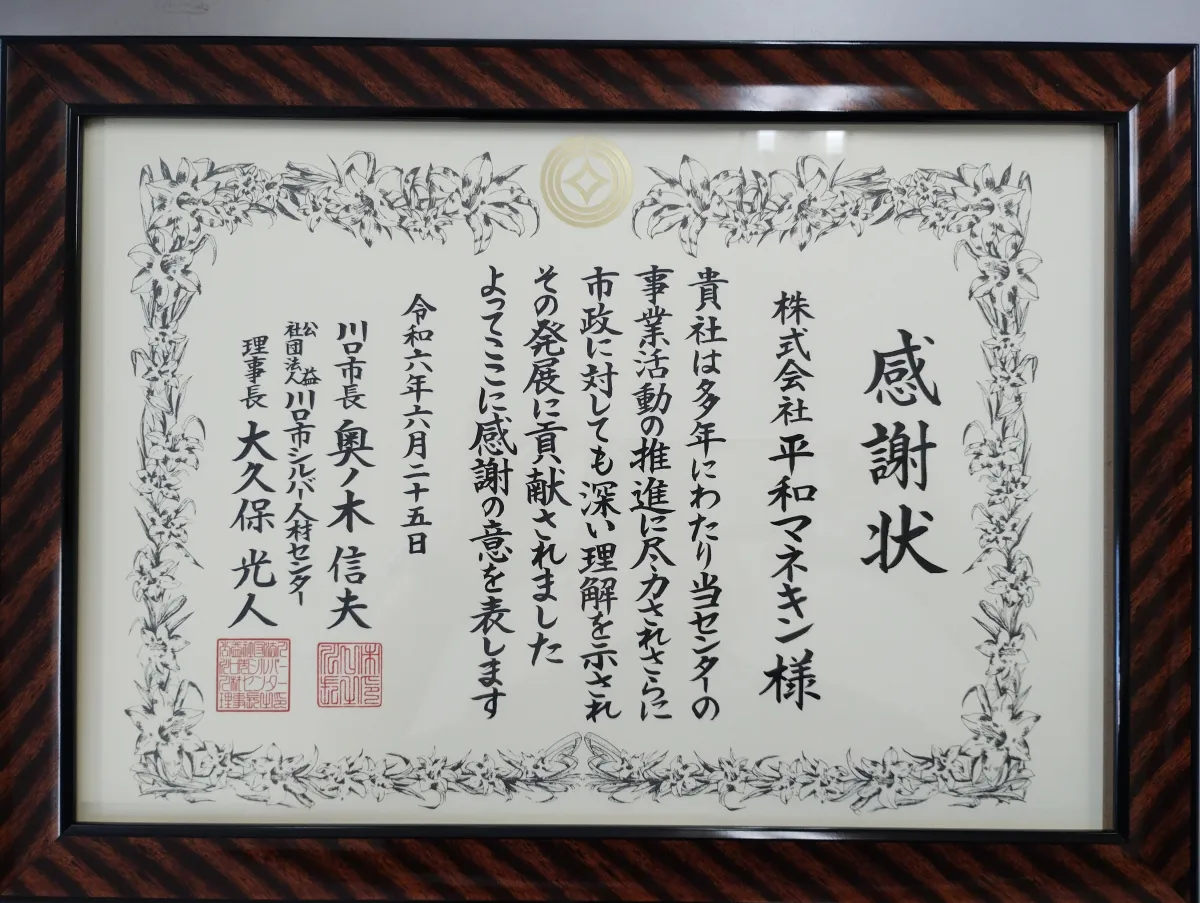 感謝状
株式会社 平和マネキン 様
貴社は多年にわたり当センターの
事業活動の推進に尽力されさらに
市政に対しても深い理解を示され
その発展に貢献されました
よってここに感謝の意を表します
令和六年六月二十五日
川口市長 奥ノ木 信夫
公益社団法人 川口市シルバー人材センター
理事長 大久保 光人